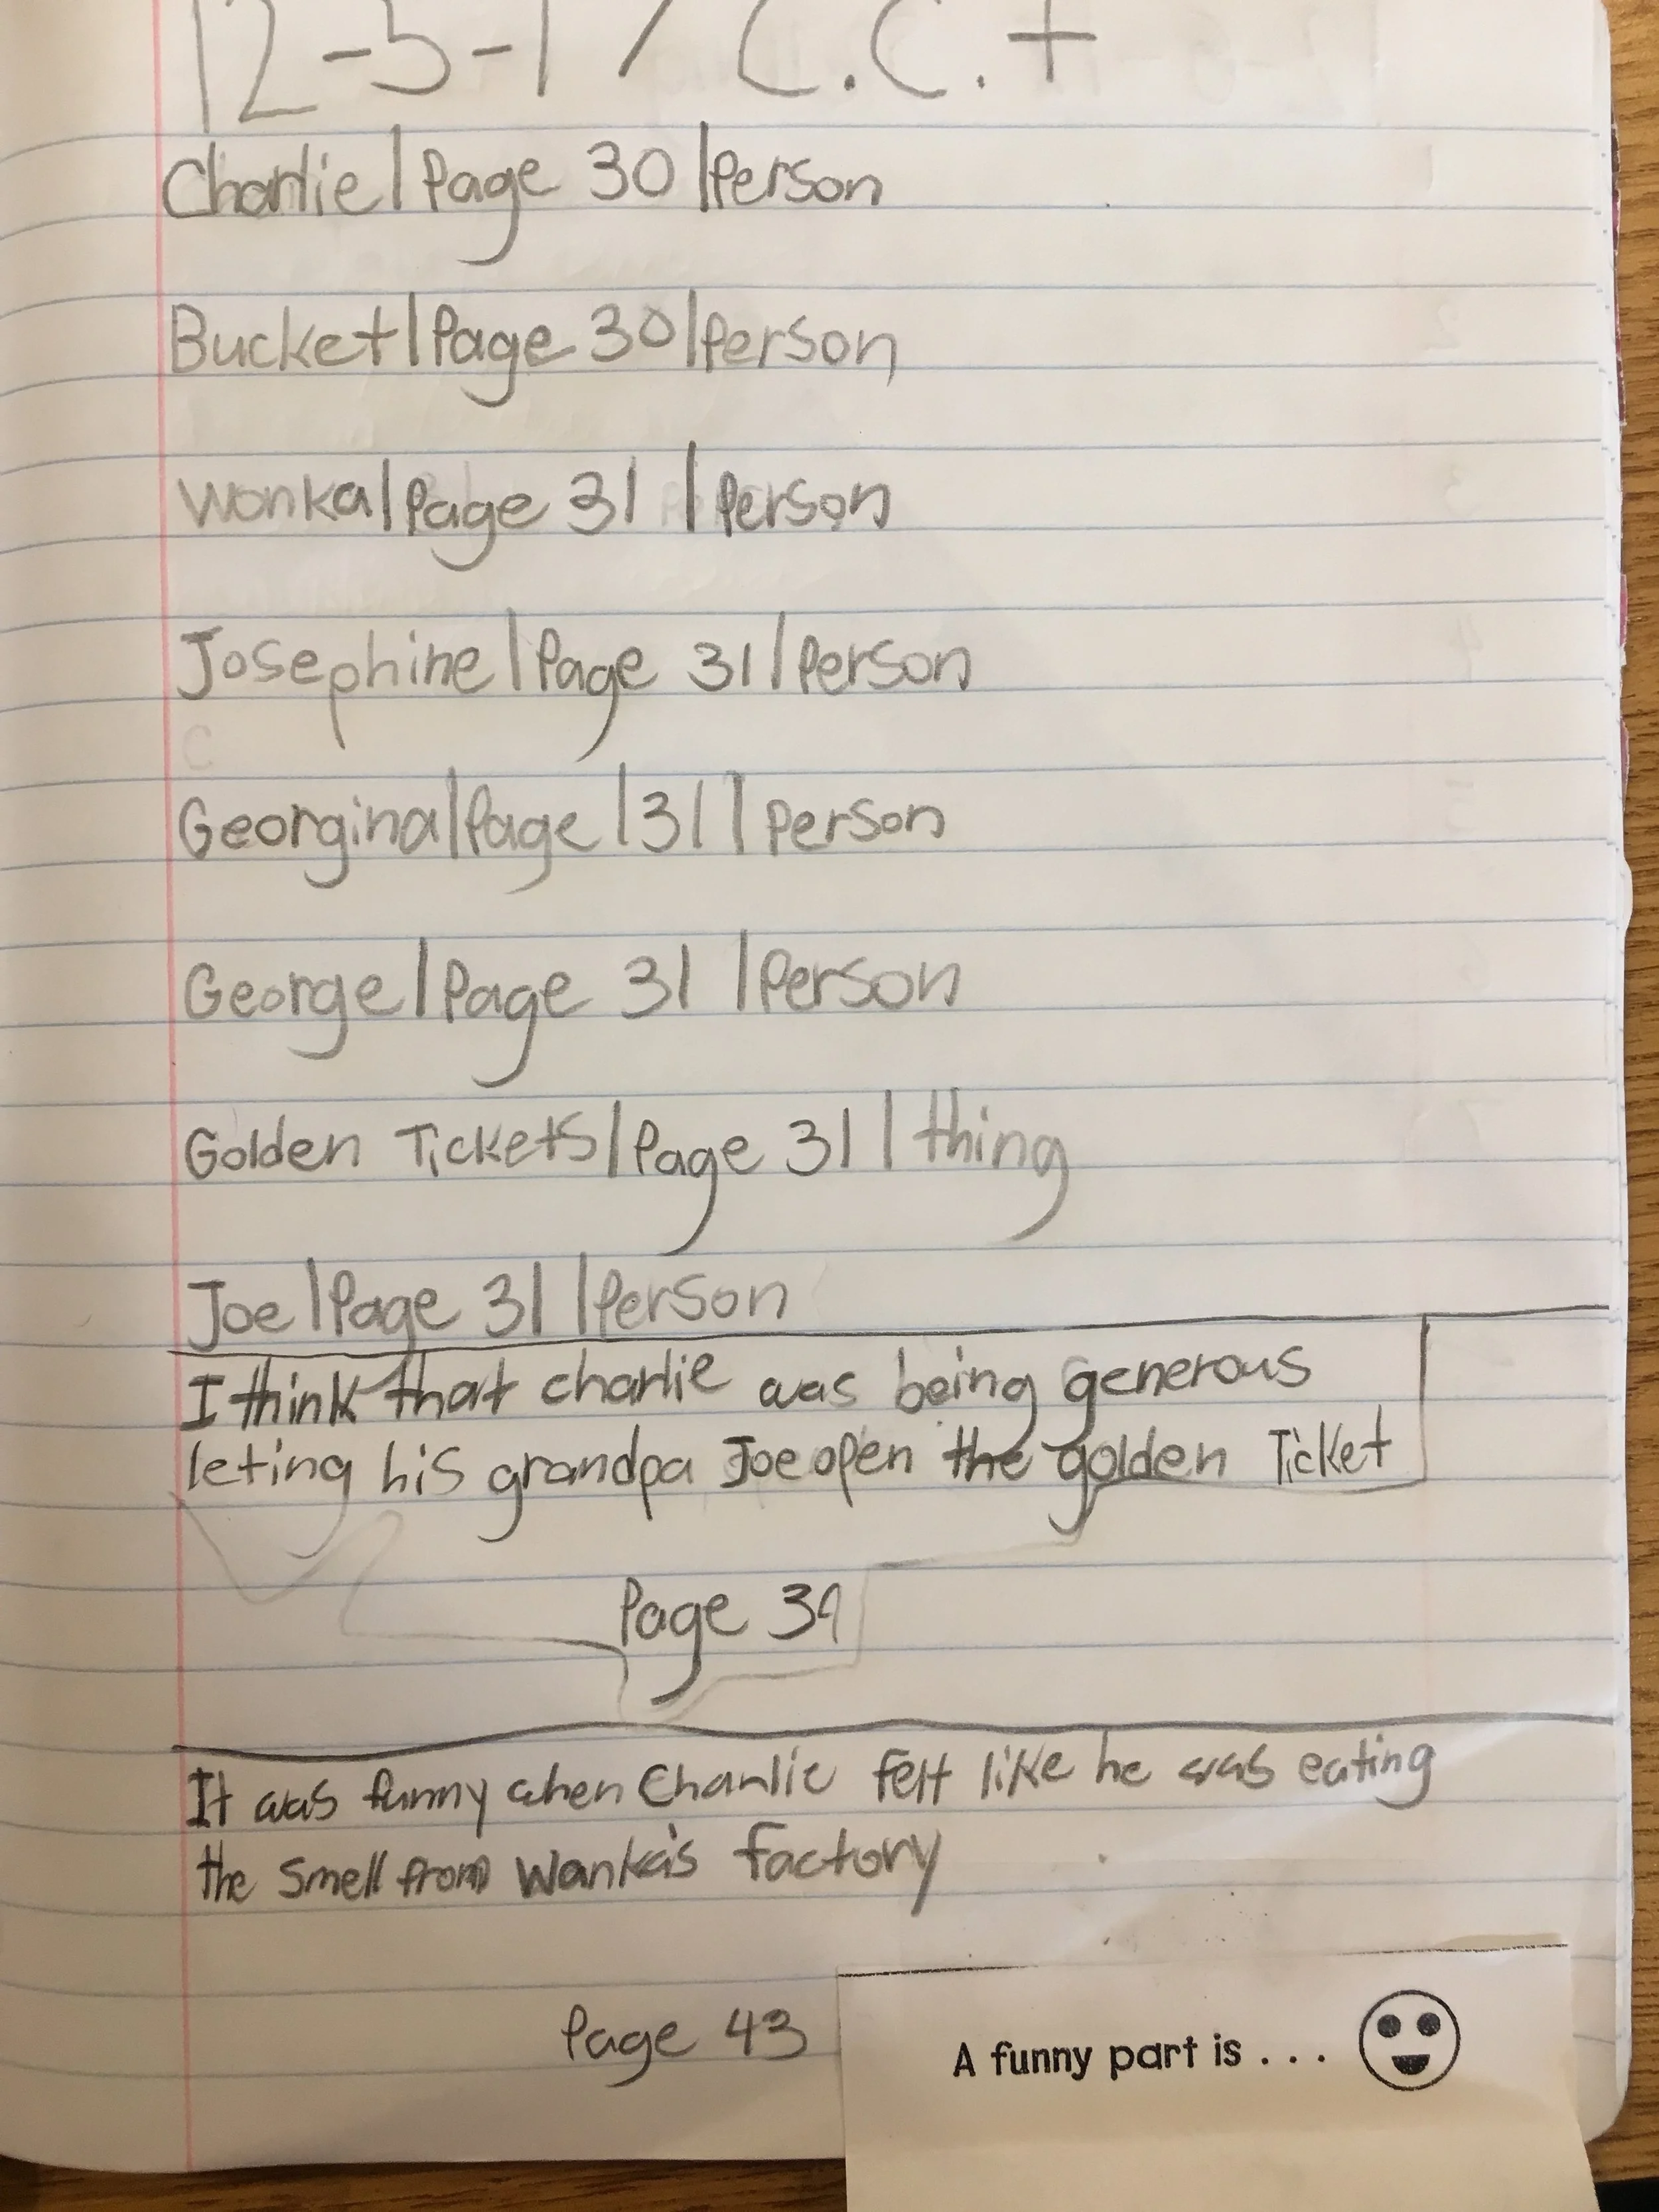 12-5-17 C.C. +
Charlie | Page 30 | Person
Bucket | Page 30 | Person
Wonka | Page 31 | Person
Josephine | Page 31 | Person
Georgina | Page | 31 | Person
George | Page 31 | Person
Golden Tickets | Page 31 | thing
Joe | Page 31 | Person
I think that charlie was being generous
leting his grandpa Joe open the golden Ticket
Page 39
It was funny when Charlie felt like he was eating
the smell from Wonka's factory
Page 43
A funny part is . . .